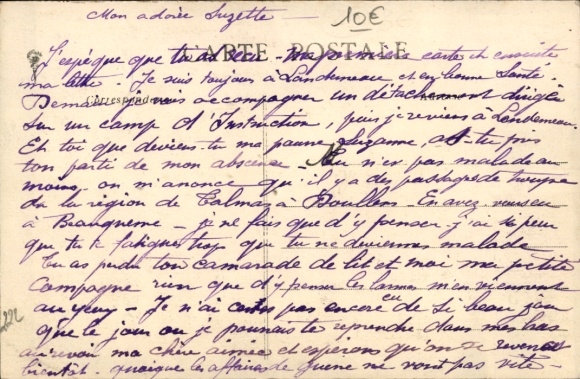 Mon adorée Suzette —
10€
CARTE POSTALE
J'espère que tu as reçu ma première carte et ensuite
ma lettre. Je suis toujours à Landerneau et en bonne santé.
Correspondance
Demain je vais accompagner un détachement dirigé
sur un camp d'Instruction, puis je reviens à Landerneau.
Et toi que deviens-tu ma pauvre Suzanne, as-tu pris
ton parti de mon absence - Tu n'es pas malade au
moins - on m'anonce qu'il y a des passages de troupes
ds la région de Talmas à Doullens - En avez vous eu
à Beauquesne - je ne fais que d'y penser j'ai si peur
que tu te fatigues trop que tu ne deviennes malade
Tu as perdu ton camarade de lit et moi ma petite
compagne rien que d'y penser les larmes m'en viennent
au yeux - Je n'ai certes pas encore eu de si beau jour
que le jour ou je pourrais te reprendre dans mes bras
revoir ma chère aimée et espérons qu'on se revera
bientôt. quoique les affaires de guerre ne vont pas vite -
222